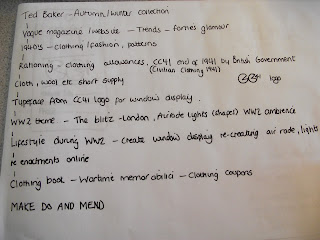 Ted Baker - Autumn/winter collection
Vogue magazine/website - Trends - forties glamour
1940s - clothing/fashion, patterns
Rationing - clothing allowances, CC41 end of 1941 by British Government
(Civilian Clothing 1941)
Cloth, wool etc short supply
CC41 logo
Typeface from CC41 logo for window display.
WW2 theme - The blitz - London, Airaide lights (shapes) WW2 ambience
Lifestyle during WW2 - Create window display re-creating air raide, lights
re enactments online
Clothing book - Wartime memorabilia - Clothing coupons
MAKE DO AND MEND